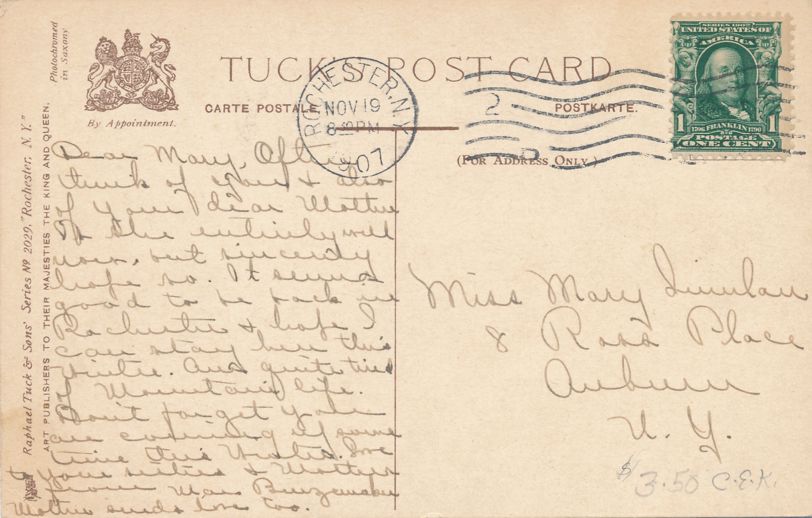 Photochromed
in Saxony
By Appointment.
TUCK'S POST CARD
CARTE POSTALE
POSTKARTE.
(FOR ADDRESS ONLY.)
ROCHESTER, N.Y.
NOV 19
8-30 PM
1907
2
SERIES 1902
UNITED STATES OF
AMERICA
1 FRANKLIN 1
POSTAGE
ONE CENT
Raphael Tuck & Sons' Series Nº 2029, "Rochester, N. Y."
ART PUBLISHERS TO THEIR MAJESTIES THE KING AND QUEEN.
Dear Mary, Often
think of you & also
of your dear Mother
Is she entirely well
now, but sincerely
hope so. It seems
good to be back in
Rochester & hope I
can stay here this
Winter. Am quite tired
of Mountain life.
Don't forget you
are coming up some
time this Winter. Love
to your sisters & Mother
from
Mother sends love too.
Miss Mary Quinlan
8 Ross Place
Auburn
N. Y.
$3.50 C.E.K.